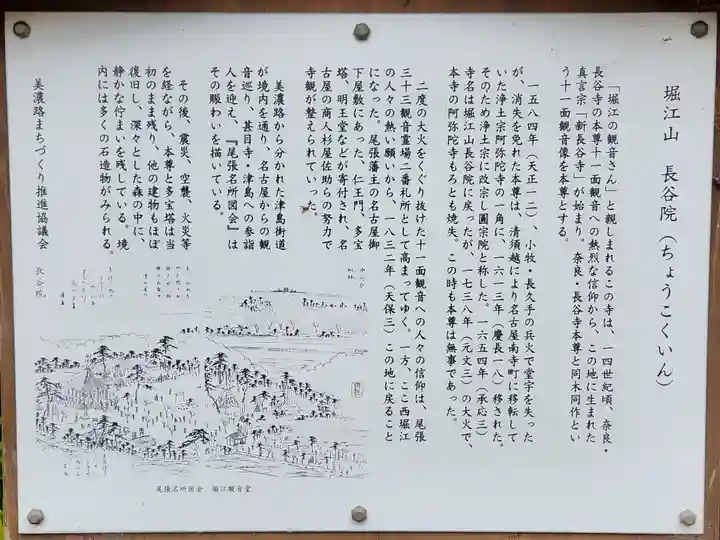 堀江山　長谷院（ちょうこくいん）
「堀江の観音さん」と親しまれるこの寺は、一四世紀頃、奈良・
長谷寺の本尊十一面観音への熱烈な信仰から、この地に生まれた
真言宗「新長谷寺」が始まり。奈良・長谷寺本尊と同木同作とい
う十一面観音像を本尊とする。
一五八四年（天正一二）、小牧・長久手の兵火で堂宇を失った
が、消失を免れた本尊は、清須越により名古屋南寺町に移転して
いた浄土宗阿弥陀寺の一角に、一六一三年（慶長一八）移された。
そのため浄土宗に改宗し圓宗院と称した。一六五四年（承応三）
寺名は堀江山長谷院に戻ったが、一七三八年（元文三）の大火で、
本寺の阿弥陀寺もろとも焼失。この時も本尊は無事であった。
二度の大火をくぐり抜けた十一面観音への人々の信仰は、尾張
三十三観音霊場二番札所として高まってゆく。一方、ここ西堀江
の人々の熱い願いから、一八三二年（天保三）この地に戻ること
になった。尾張藩主の名古屋御
下屋敷にあった、仁王門、多宝
塔、明王堂などが寄付され、名
古屋の商人杉屋佐助らの努力で
寺観が整えられていった。
美濃路から分かれた津島街道
が境内を通り、名古屋からの観
音巡り、甚目寺・津島への参詣
人を迎え、『尾張名所図会』は
その賑わいを描いている。
その後、震災、空襲、火災等
を経ながら、本尊と多宝塔は当
初のまま残り、他の建物もほぼ
復旧し、深々とした森の中に、
静かな佇まいを残している。境
内には多くの石造物がみられる。
美濃路まちづくり推進協議会
長谷院
尾張名所図会　堀江観音堂